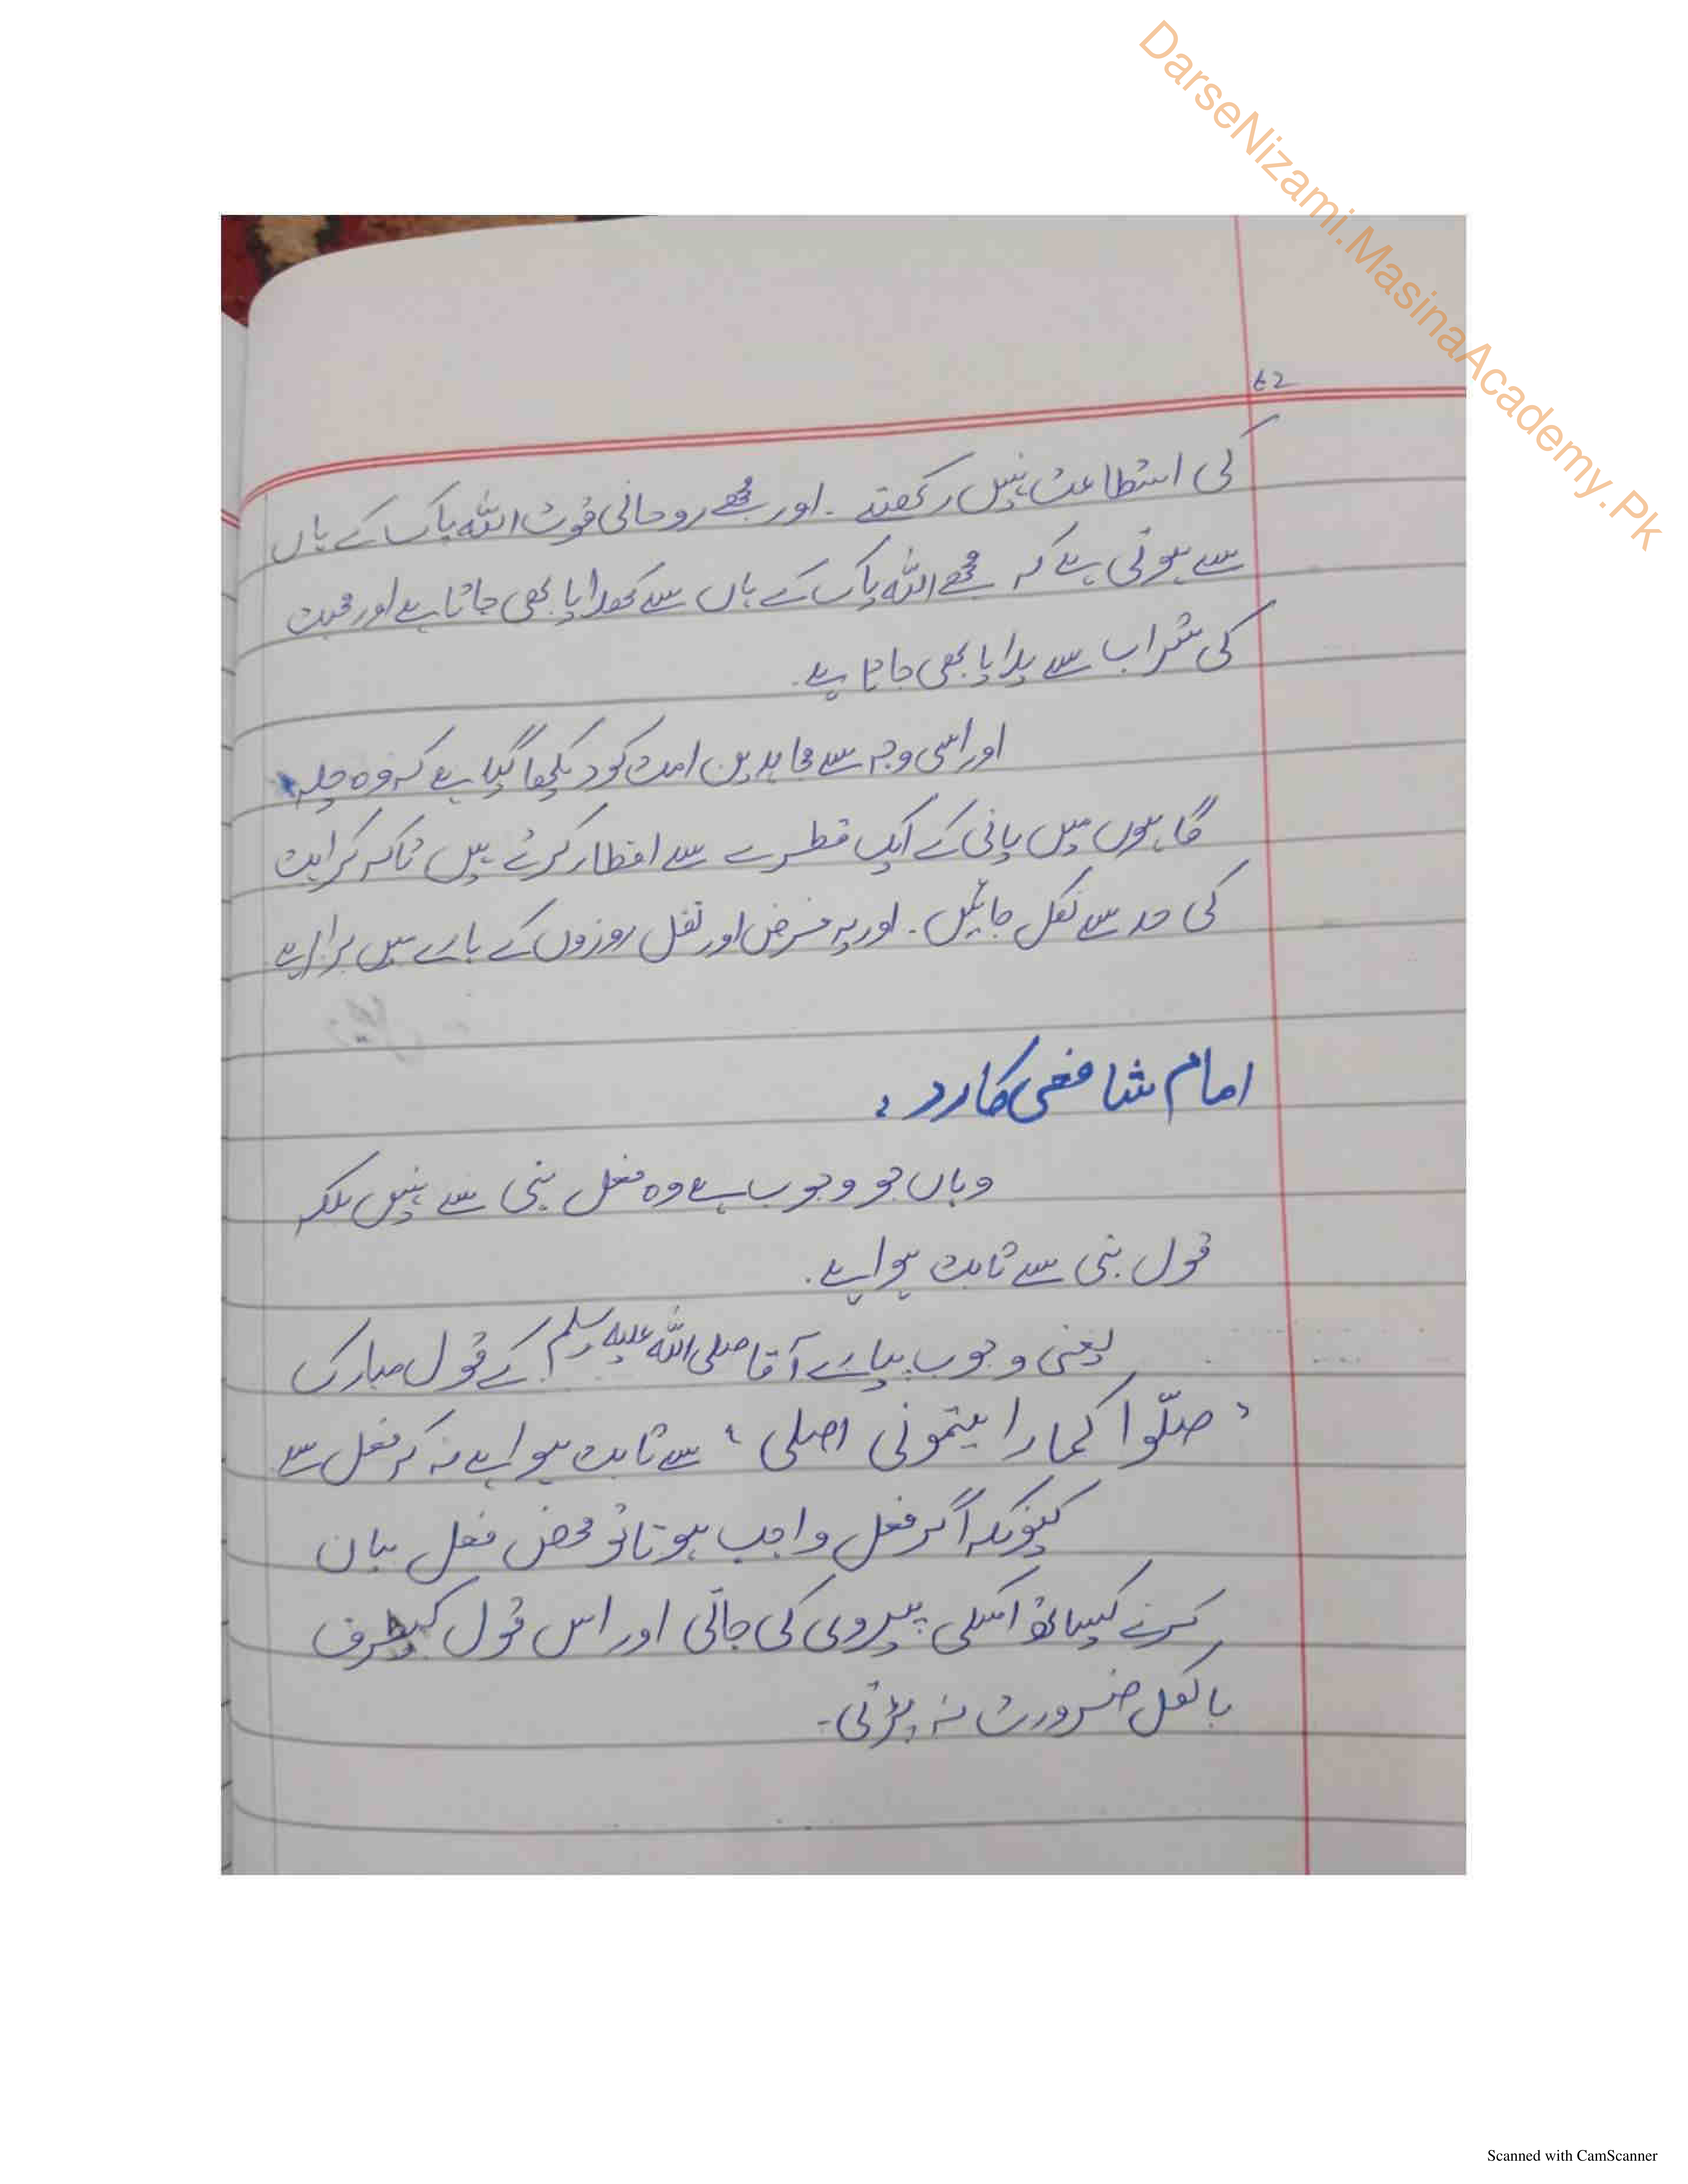 DarseNizami.MasinaAcademy.Pk
62
کی استطاعت نہیں رکھتے ۔ اور مجھے روحانی قوت اللہ پاک کے ہاں
سے ہوتی ہے کہ مجھے اللہ پاک کے ہاں سے کھلایا بھی جاتا ہے اور محبت
کی شراب سے پلایا بھی جاتا ہے ۔
اور اسی وجہ سے مجاہدین امت کو دیکھا گیا ہے کہ وہ چلہ
گاہوں میں پانی کے ایک قطرے سے افطار کرتے ہیں تاکہ کراہت
کی حد سے نکل جائیں ۔ اور یہ فرض اور نفل روزوں کے بارے میں برابر ہے
امام شافعی کا رد :
وہاں جو وجوب ہے وہ فعل نبی سے نہیں بلکہ
قول نبی سے ثابت ہوا ہے ۔
یعنی وجوب پیارے آقا صلی اللہ علیہ وسلم کے قول مبارک
‘ صلّوا کما رایتمونی اصلی ’ سے ثابت ہوا ہے نہ کہ فعل سے
کیونکہ اگر فعل واجب ہوتا تو محض فعل بیان
کرنے کیساتھ اسکی پیروی کی جاتی اور اس قول کیطرف
بالکل ضرورت نہ پڑتی ۔
Scanned with CamScanner